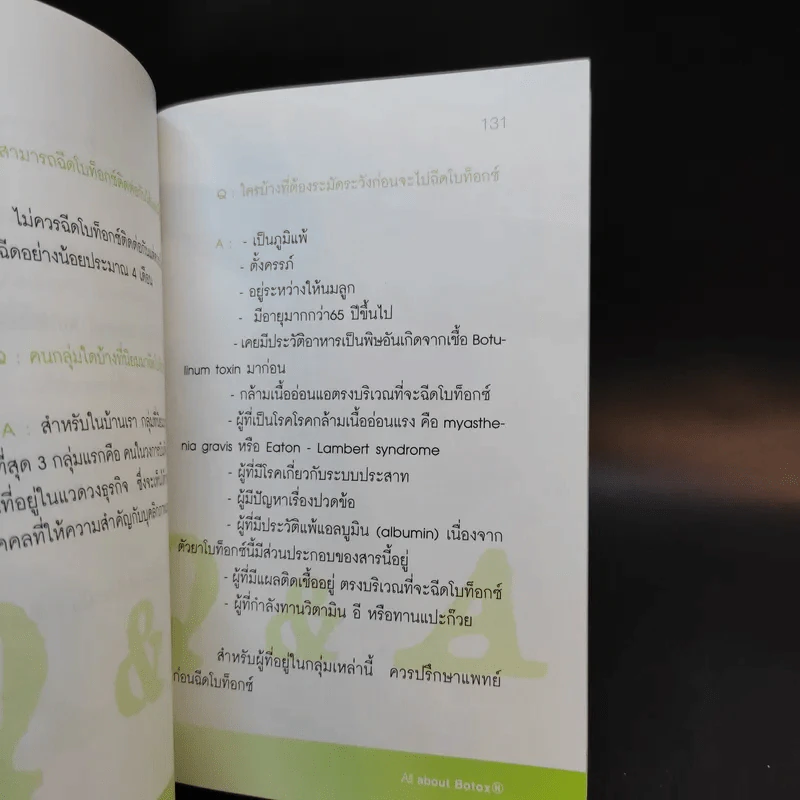 สามารถฉีดโบท็อกซ์ติดต่อกัน
ไม่ควรฉีดโบท็อกซ์ติดต่อกัน
ฉีดอย่างน้อยประมาณ 4 เดือน
Q : คนกลุ่มใดบ้างที่นิยม
A : สำหรับในบ้านเรา กลุ่มที่
ที่สุด 3 กลุ่มแรกคือ คนในวงการ
ที่อยู่ในแวดวงธุรกิจ ซึ่งจะ
คคลที่ให้ความสำคัญกับบุคลิก
131
Q : ใครบ้างที่ต้องระมัดระวังก่อนจะไปฉีดโบท็อกซ์
A : - เป็นภูมิแพ้
- ตั้งครรภ์
- อยู่ระหว่างให้นมลูก
- มีอายุมากกว่า65 ปีขึ้นไป
- เคยมีประวัติอาหารเป็นพิษอันเกิดจากเชื้อ Botu-
linum toxin มาก่อน
- กล้ามเนื้ออ่อนแอตรงบริเวณที่จะฉีดโบท็อกซ์
- ผู้ที่เป็นโรคโรคกล้ามเนื้ออ่อนแรง คือ myasthe-
nia gravis หรือ Eaton - Lambert syndrome
- ผู้ที่มีโรคเกี่ยวกับระบบประสาท
- ผู้มีปัญหาเรื่องปวดข้อ
- ผู้ที่มีประวัติแพ้แอลบูมิน (albumin) เนื่องจาก
ตัวยาโบท็อกซ์นี้มีส่วนประกอบของสารนี้อยู่
- ผู้ที่มีแผลติดเชื้ออยู่ ตรงบริเวณที่จะฉีดโบท็อกซ์
- ผู้ที่กำลังทานวิตามิน อี หรือทานแปะก๊วย
สำหรับผู้ที่อยู่ในกลุ่มเหล่านี้ ควรปรึกษาแพทย์
ก่อนฉีดโบท็อกซ์
Q & A
All about Botox®